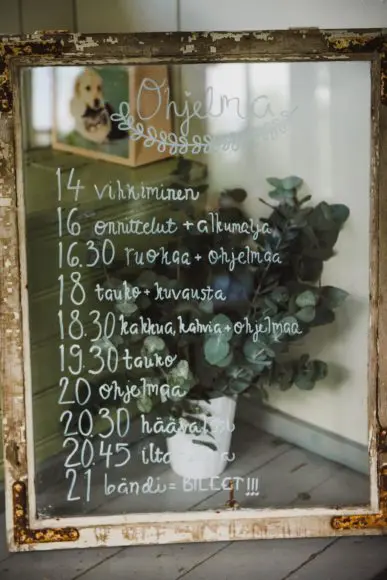 Ohjelma
14 vihkiminen
16 onnittelut + alkumalja
16.30 ruokaa + ohjelmaa
18 tauko + kuvausta
18.30 kakkua, kahvia + ohjelmaa
19.30 tauko
20 ohjelmaa
20.30
20.45
21 bändi = BILEET!!!